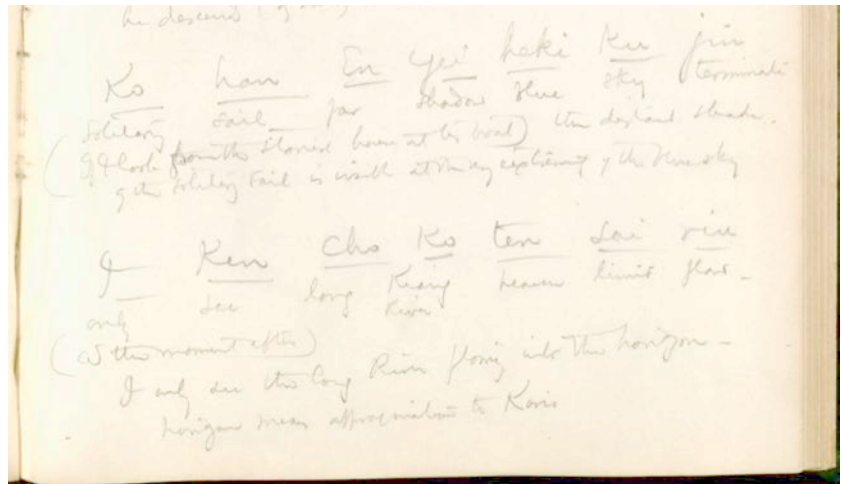 he descends (
Ko han En yei heki Ku jin
solitary sail far shadow blue sky terminate
(If I look from the storied house at his boat) the distant shadow
of the solitary sail is visible at the very extremity of the blue sky
I Ken Cho Ko ten sai riu
only see long Kiang heaven limit flow
River
(at the moment after)
I only see the long River flowing into the horizon
horigon mean approximation to